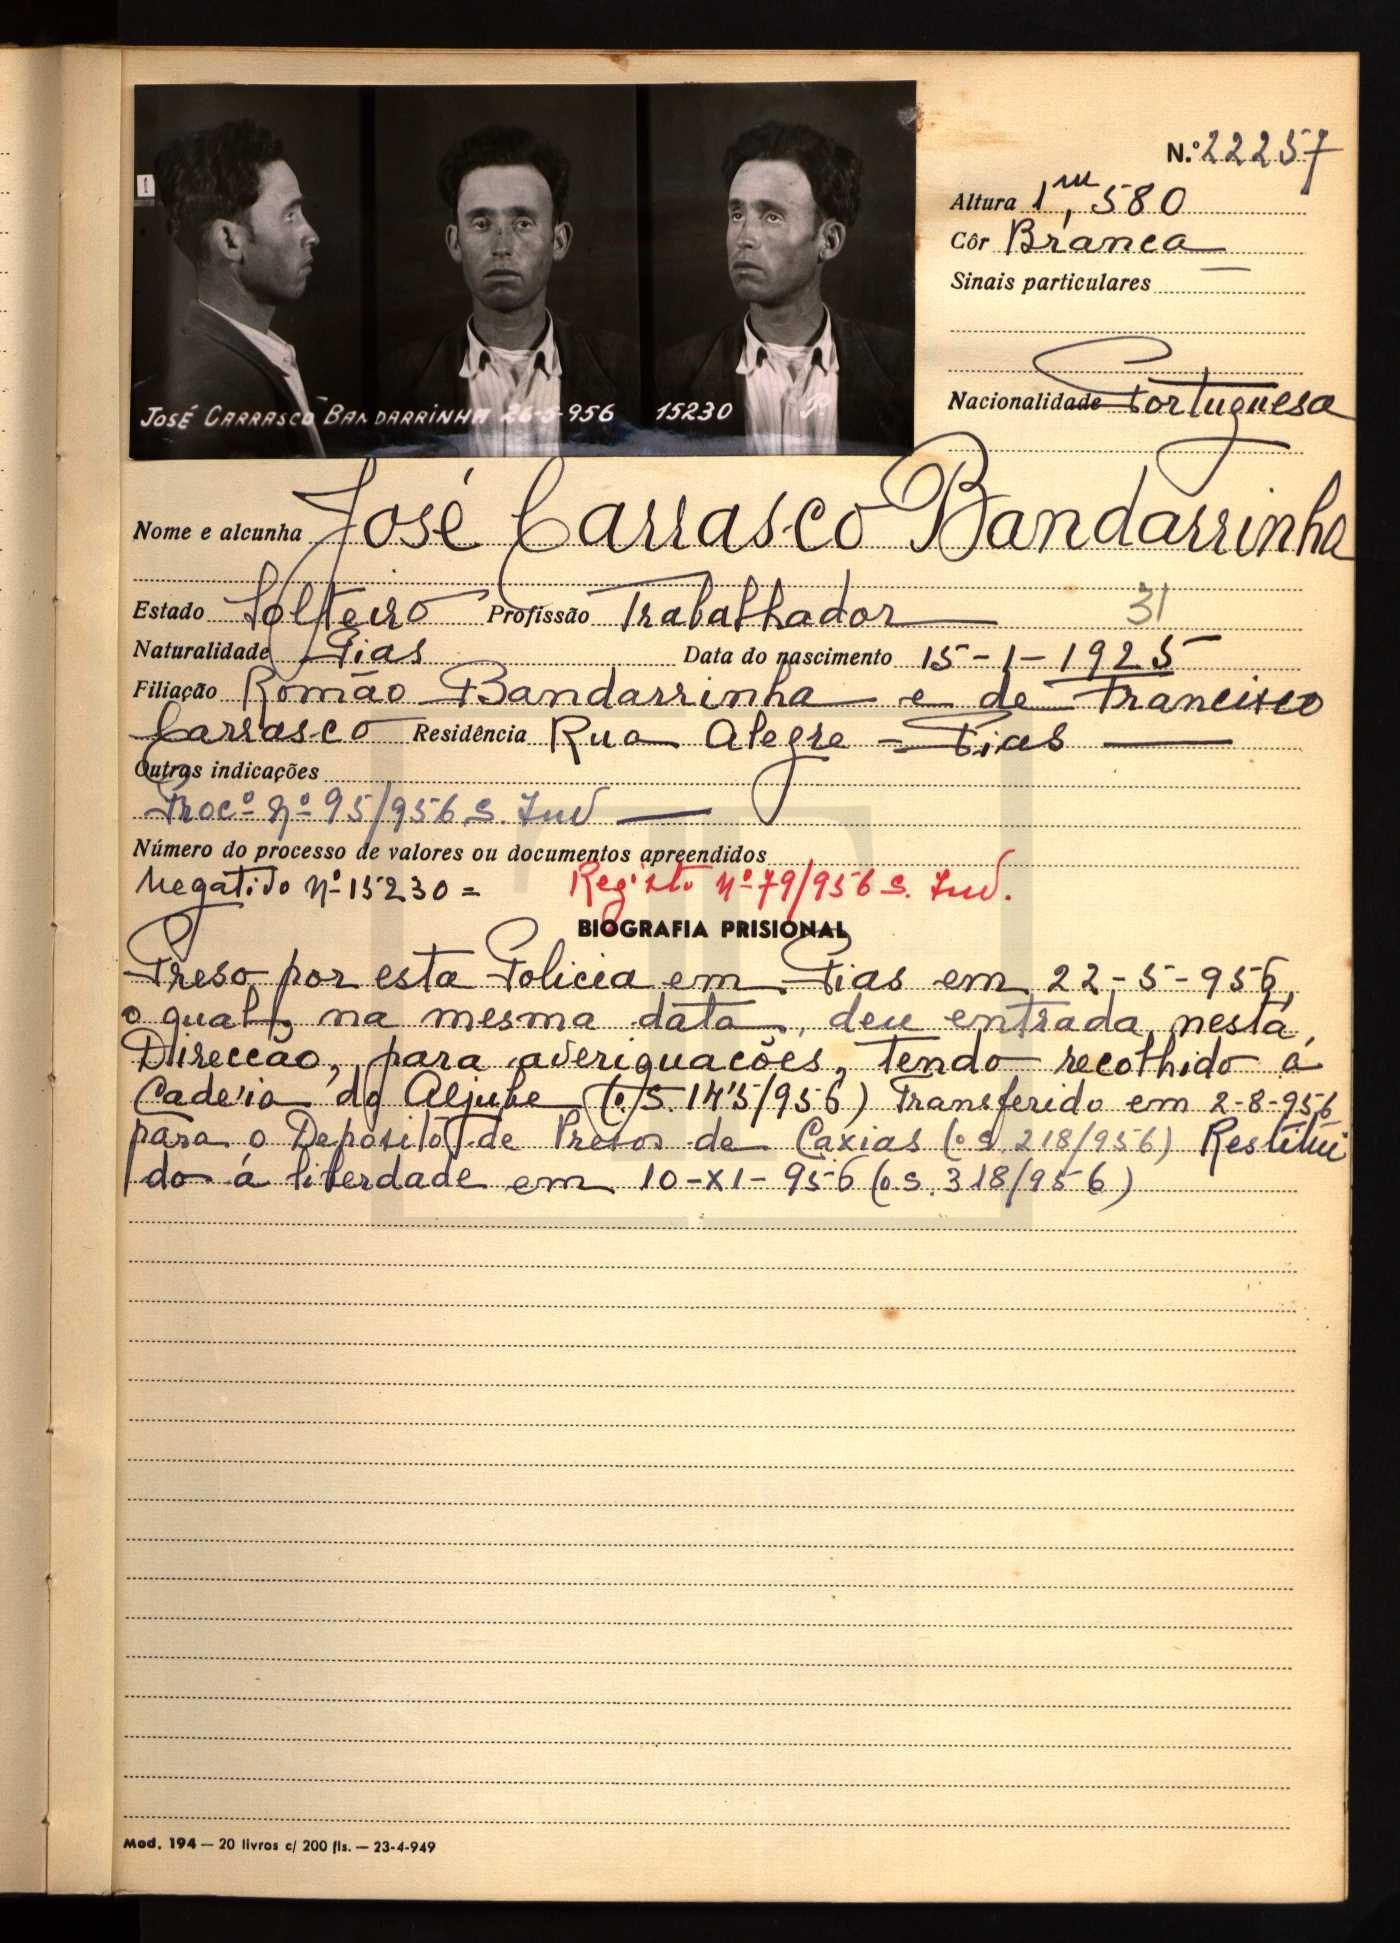 N.º 22257
Altura 1m,580
Côr Branca
Sinais particulares —
Nacionalidade Portuguesa
JOSÉ CARRASCO BANDARRINHA 26-5-956 15230
Nome e alcunha José Carrasco Bandarrinha
Estado Solteiro Profissão Trabalhador 31
Naturalidade Pias Data do nascimento 15-1-1925
Filiação Romão Bandarrinha e de Francisco
Carrasco Residência Rua Alegre = Pias
Outras indicações
Procº nº 95/956 S. Inv
Número do processo de valores ou documentos apreendidos
Negativo nº 15230 = Registo nº 79/956 S. Inv.
BIOGRAFIA PRISIONAL
Preso por esta Policia em Pias em 22-5-956,
o qual, na mesma data, deu entrada nesta
Direccão, para averiguacões, tendo recolhido á
Cadeia do Aljube (o.S. 145/956) Transferido em 2-8-956
para o Depósito de Presos de Caxias (o.S. 218/956) Restitui
do á liberdade em 10-XI-956 (o.S. 318/956)
Mod. 194 — 20 livros c/ 200 fls. — 23-4-949